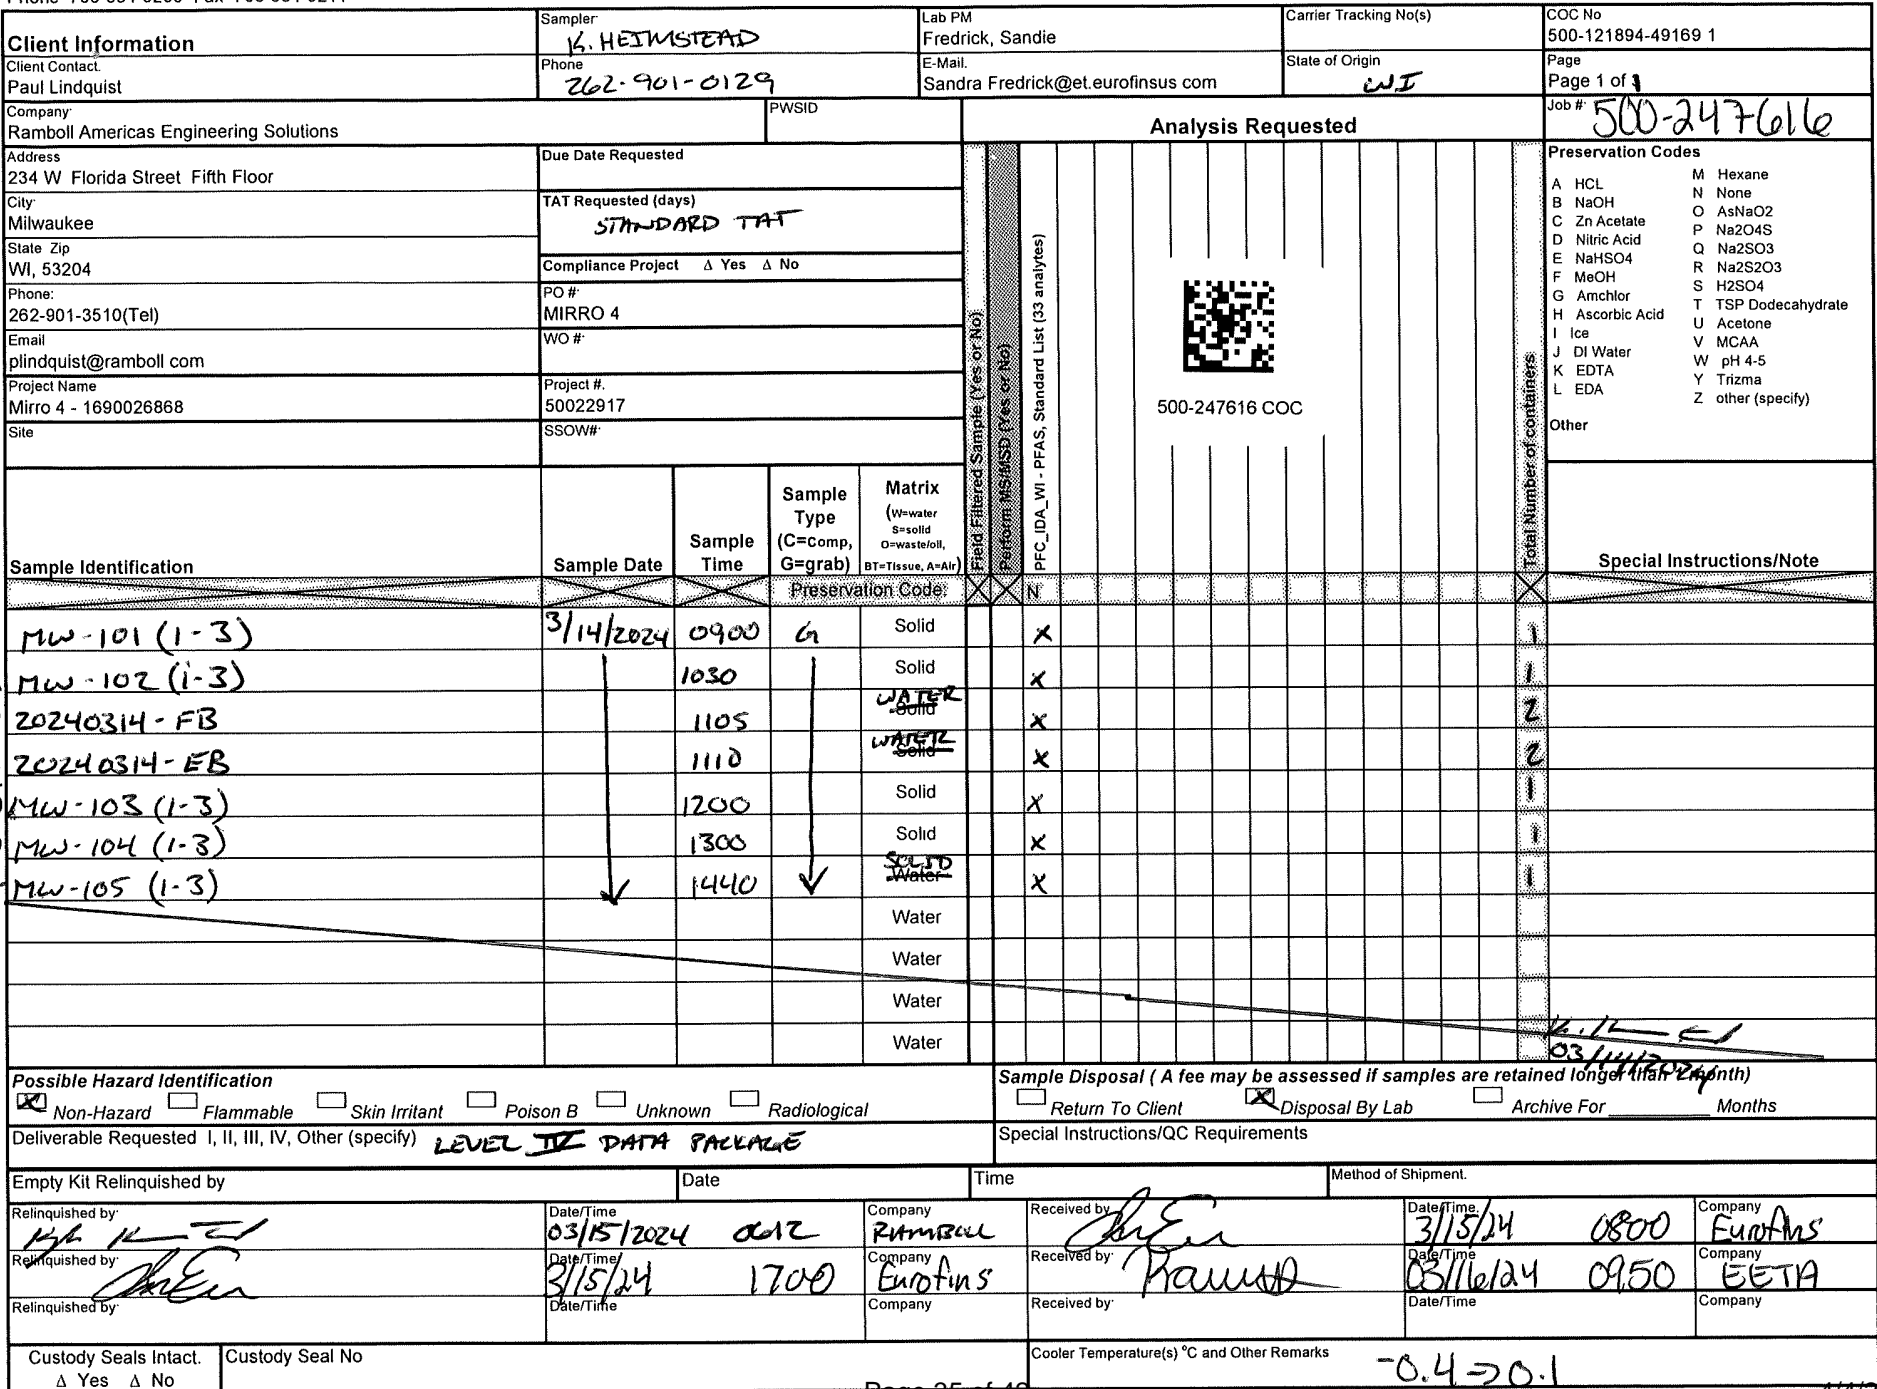 Client Information
Sampler
K. HEIMSTEAD
Lab PM
Fredrick, Sandie
Carrier Tracking No(s)
COC No
500-121894-49169 1
Client Contact.
Paul Lindquist
Phone
262-901-0129
E-Mail.
Sandra Fredrick@et.eurofinsus com
State of Origin
WI
Page
Page 1 of 1
Company
Ramboll Americas Engineering Solutions
PWSID
Analysis Requested
Job #
500-247616
Address
234 W Florida Street Fifth Floor
City
Milwaukee
State Zip
WI, 53204
Phone:
262-901-3510(Tel)
Email
plindquist@ramboll com
Project Name
Mirro 4 - 1690026868
Site
Due Date Requested
TAT Requested (days)
STANDARD TAT
Compliance Project Δ Yes Δ No
PO #
MIRRO 4
WO #
Project #.
50022917
SSOW#
Field Filtered Sample (Yes or No)
Perform MS/MSD (Yes or No)
PFC_IDA_WI - PFAS, Standard List (33 analytes)
500-247616 COC
Total Number of containers
Preservation Codes
A HCL
B NaOH
C Zn Acetate
D Nitric Acid
E NaHSO4
F MeOH
G Amchlor
H Ascorbic Acid
I Ice
J DI Water
K EDTA
L EDA
M Hexane
N None
O AsNaO2
P Na2O4S
Q Na2SO3
R Na2S2O3
S H2SO4
T TSP Dodecahydrate
U Acetone
V MCAA
W pH 4-5
Y Trizma
Z other (specify)
Other
Sample Identification
Sample Date
Sample Time
Sample Type (C=comp, G=grab)
Matrix (W=water S=solid O=waste/oil, BT=Tissue, A=Air)
Special Instructions/Note
Preservation Code: N
MW-101 (1-3) 3/14/2024 0900 G Solid X 1
MW-102 (1-3) 1030 Solid X 1
20240314-FB 1105 WATER Solid X 2
20240314-EB 1110 WATER Solid X 2
MW-103 (1-3) 1200 Solid X 1
MW-104 (1-3) 1300 Solid X 1
MW-105 (1-3) 1440 SOLID Water X 1
Water
Water
Water
Water
03/14/2024
Possible Hazard Identification
X Non-Hazard Flammable Skin Irritant Poison B Unknown Radiological
Sample Disposal ( A fee may be assessed if samples are retained longer than 1 month)
Return To Client X Disposal By Lab Archive For Months
Deliverable Requested I, II, III, IV, Other (specify) LEVEL IV DATA PACKAGE
Special Instructions/QC Requirements
Empty Kit Relinquished by
Date
Time
Method of Shipment.
Relinquished by
Date/Time
03/15/2024 0612
Company
RAMBOLL
Received by
Date/Time
3/15/24 0800
Company
Eurofins
Relinquished by
Date/Time
3/15/24 1700
Company
Eurofins
Received by
Date/Time
03/16/24 0950
Company
EETA
Relinquished by
Date/Time
Company
Received by
Date/Time
Company
Custody Seals Intact.
Δ Yes Δ No
Custody Seal No
Cooler Temperature(s) °C and Other Remarks
-0.4→0.1